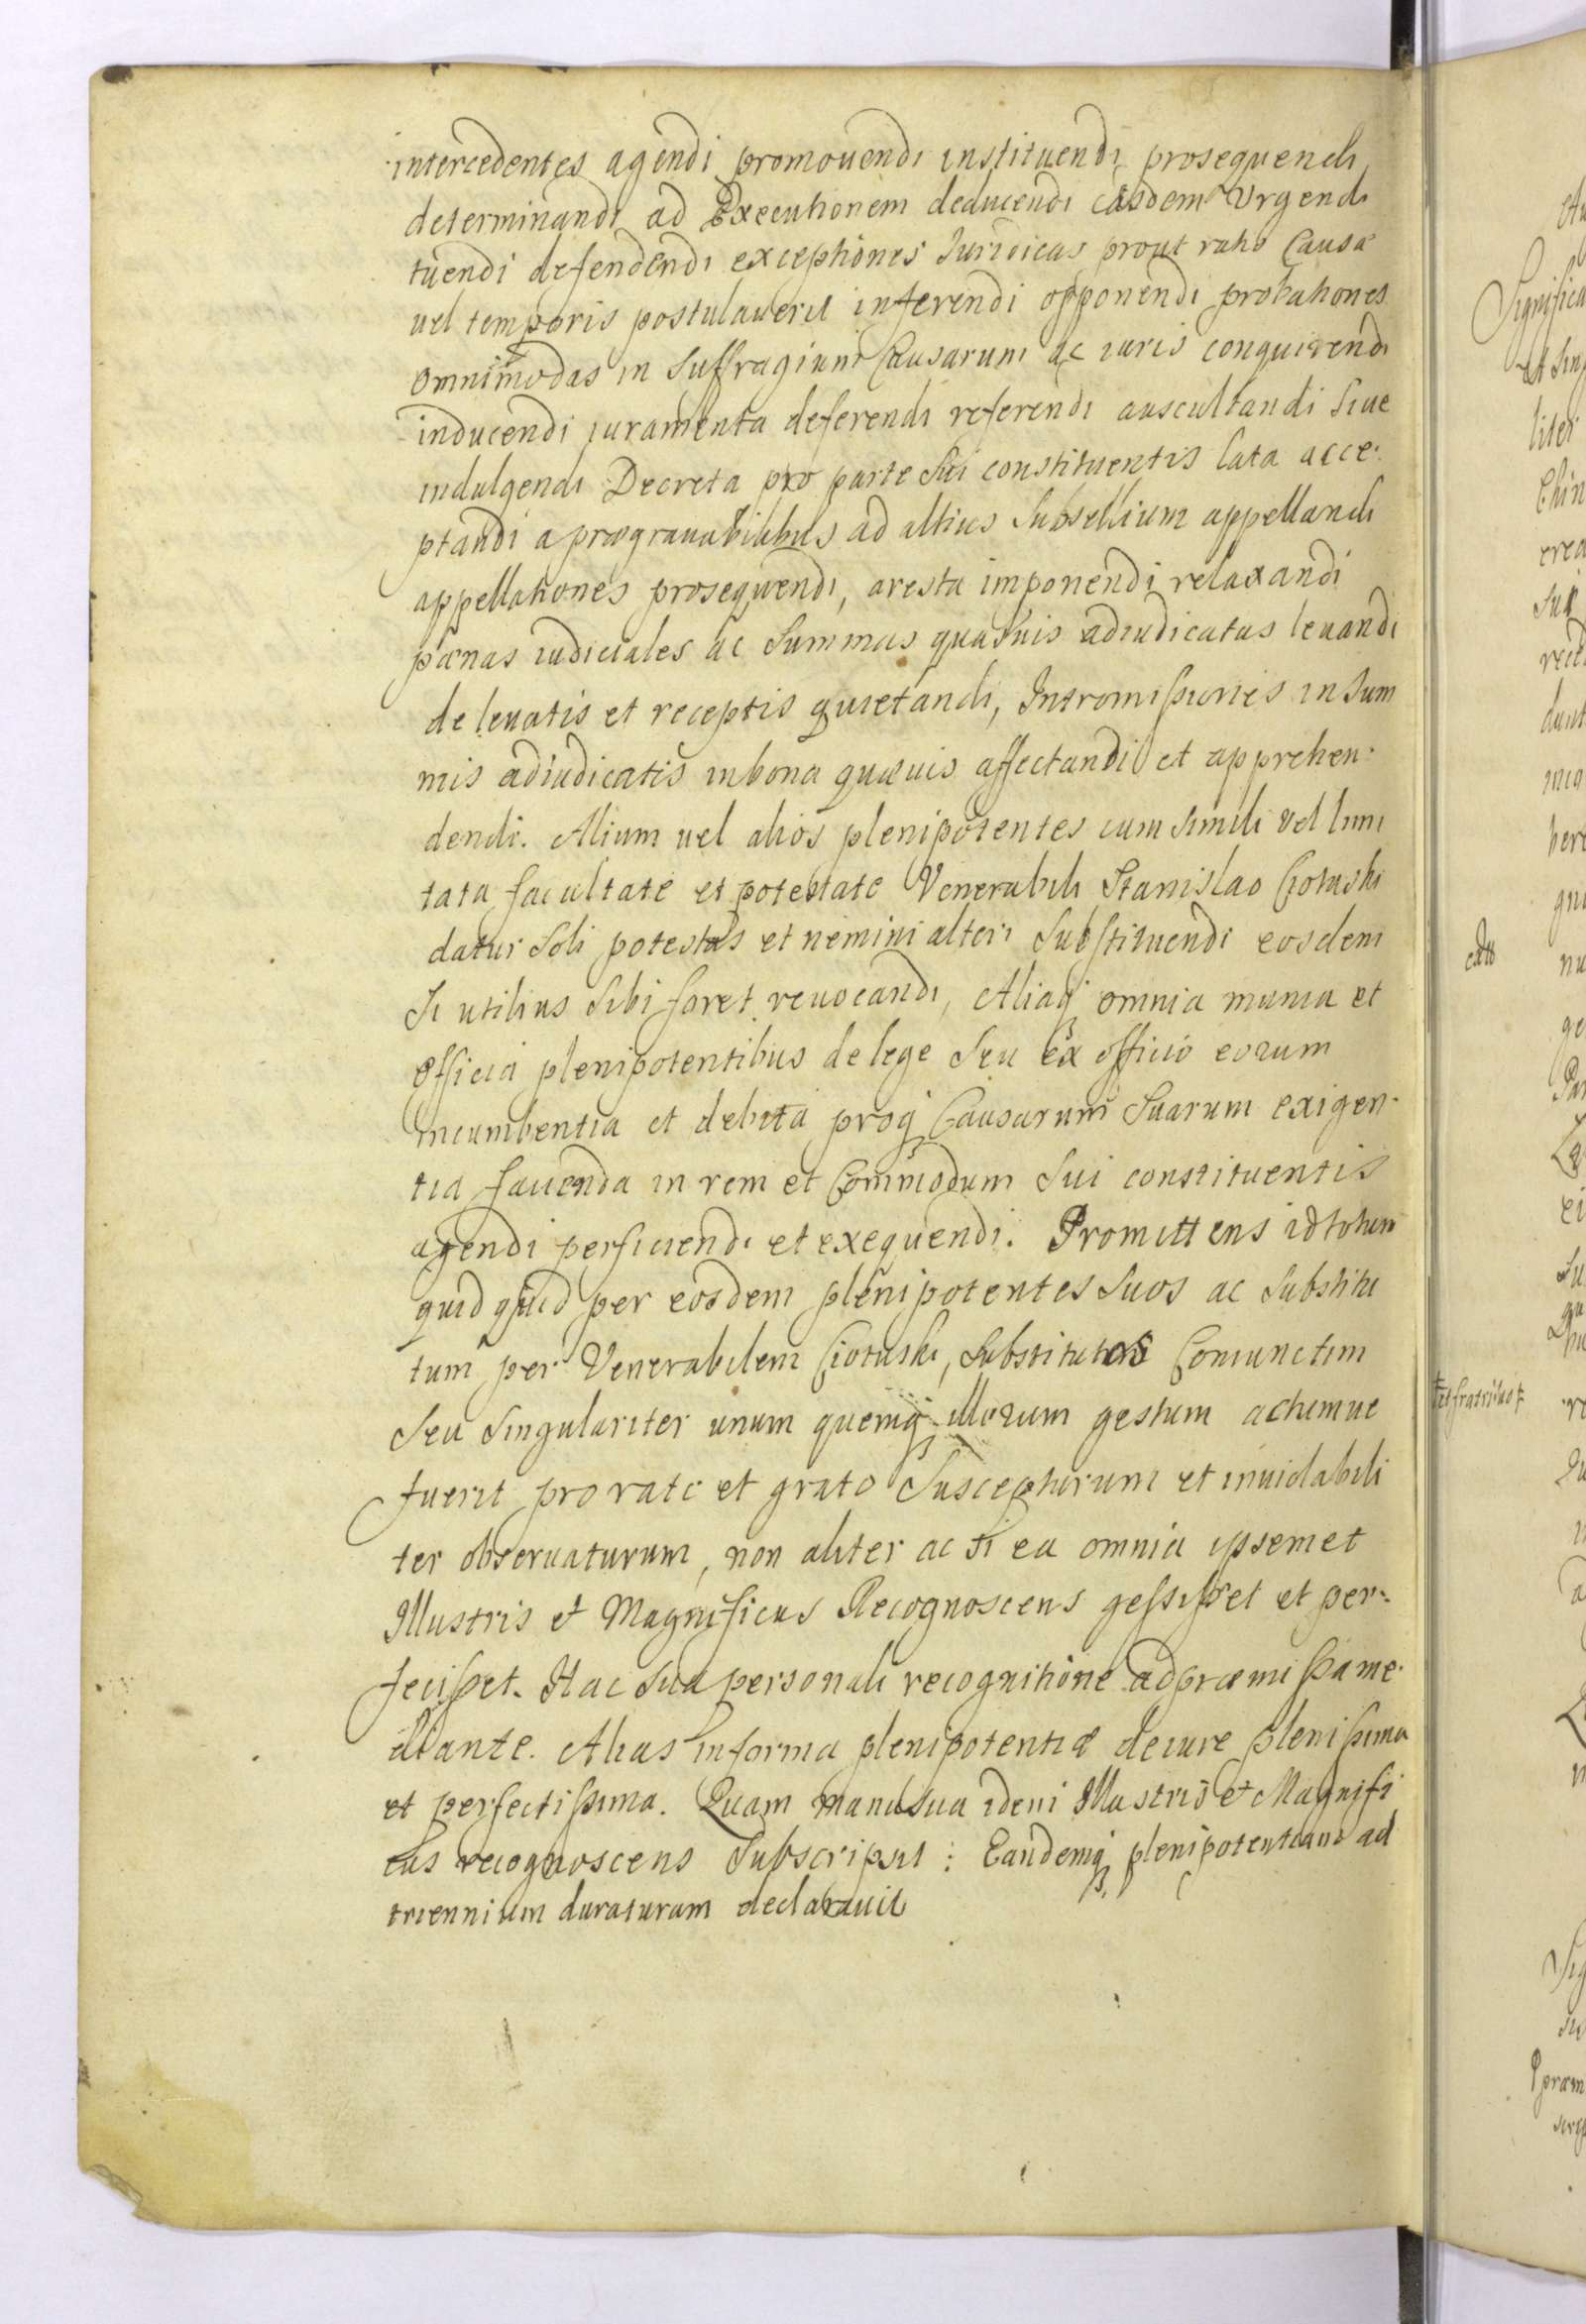 intercedentes agendi promouendi instituendi prosequendi
determinandi ad Executionem deducendi easdem Urgendi
tuendi defendendi exceptiones Iuridicas prout ratio Causæ
uel temporis postulauerit inferendi opponendi probationes
omnimodas in Suffragium Causarum ac iuris conquirendi
inducendi iuramenta deferendi referendi auscultandi Siue
indulgendi Decreta pro parte Sui constituentis lata acce-
ptandi a prægrauabilibus ad altius Subsellium appellandi
appellationes prosequendi, aresta imponendi relaxandi
pænas iudiciales ac Summas quasuis adiudicatas leuandi
de leuatis et receptis quietandi, Intromissiones in Sum
mis adiudicatis in bona quæuis affectandi et apprehen-
dendi. Alium uel alios plenipotentes cum simili vel limi
tata facultate et potestate Venerabili Stanislao Ciotuski
datur Soli potestas et nemini alteri Substituendi eosdem
Si utilius Sibi foret reuocandi, Aliaq₃ omnia munia et
Officia plenipotentibus de lege Seu ex officio eorum
incumbentia et debita proq₃ Causarum Suarum exigen-
tia fauenda in rem et Commodum Sui constituentis
agendi perficiendi et exequendi. Promittens id totum
quidquid per eosdem plenipotentes Suos ac Substitu
tum per Venerabilem Ciotuski, Substitutos Coniunctim
Seu Singulariter unum quemq₃ illorum gestum actumue
fuerit pro rato et grato Suscepturum et inuiolabili
ter obseruaturum, non aliter ac si ea omnia ipsemet
Illustris et Magnificus Recognoscens gessisset et per-
fecisset. Hac Sua personali recognitione ad præmissa me-
diante. Alias in forma plenipotentiæ de iure plenissima
et perfectissima. Quam manu Sua idem Illustris et Magnifi
cus recognoscens Subscripsit : Eandemq₃ plenipotentiam ad
triennium duraturam declarauit